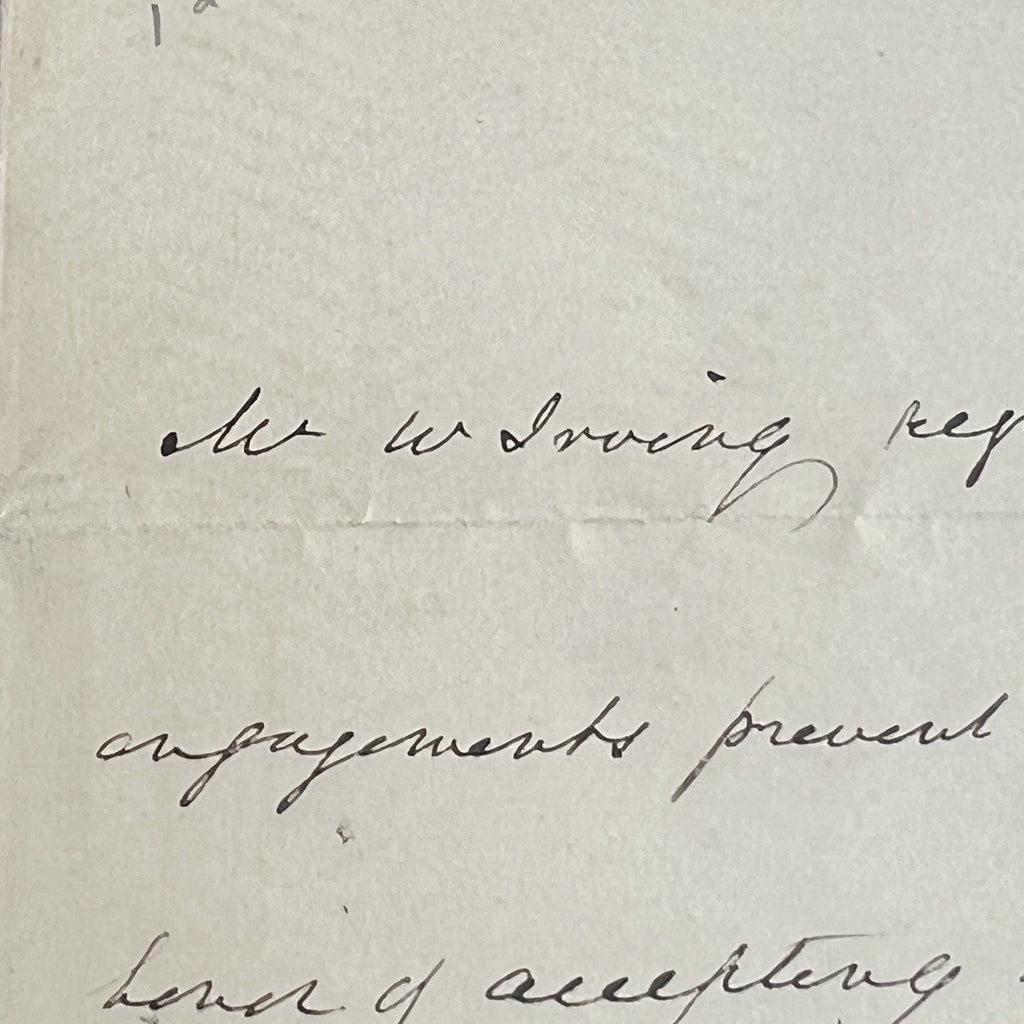 Mr W Irving reg
engagements prevent
honor of accepting